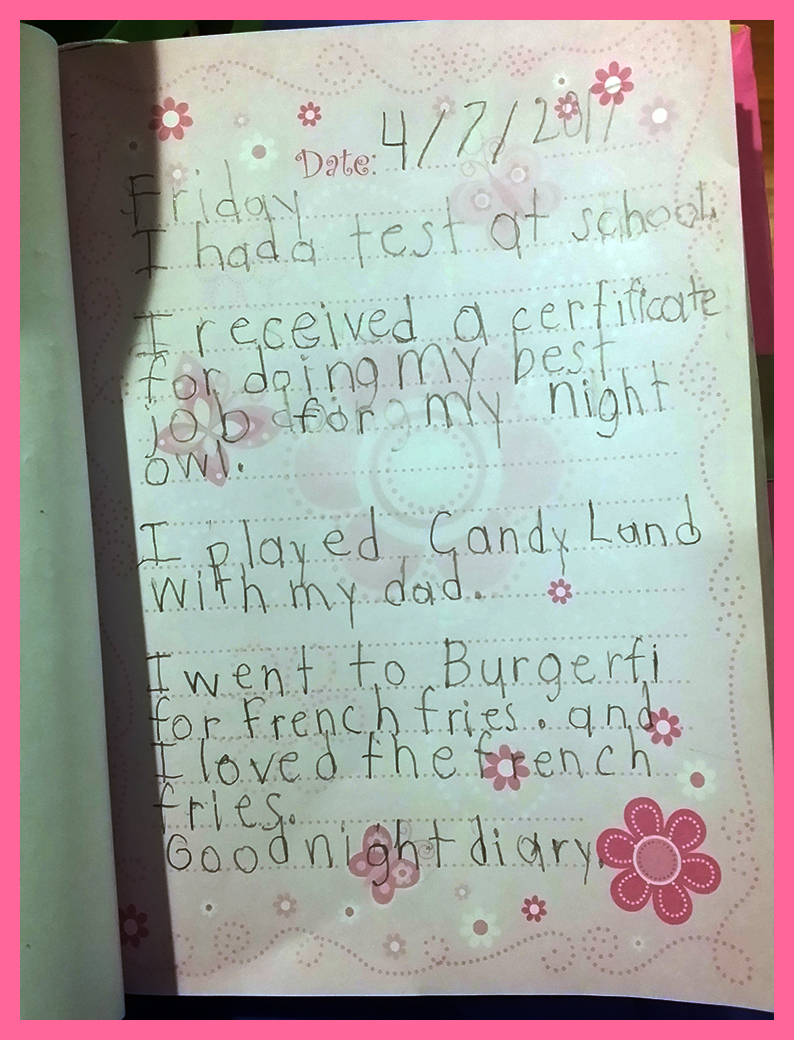 Date: 4/7/2017
Friday
I had a test at school.
I received a certificate
for doing my best
job for my night
owl.
I played Candy Land
with my dad.
I went to Burgerfi
for French fries. and
I loved the french
fries.
Good night diary.